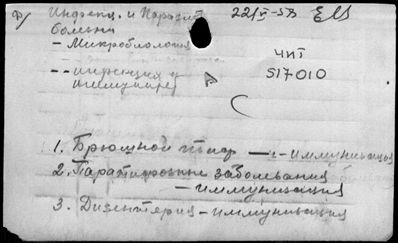 ф/ Инфекц. и Паразит. 22/V-53
болезни
- Микробиология
ЧИТ
-- инфекция и
517010
иммунитет
1. Брюшной тиф — иммунизация
2. Паратифозные заболевания
- иммунизация
3. Дизентерия - иммунизация